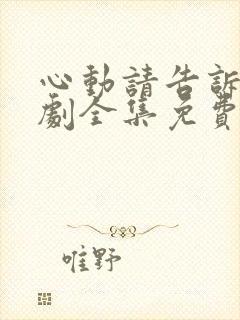 心動請告訴
劇全集免費
唯野